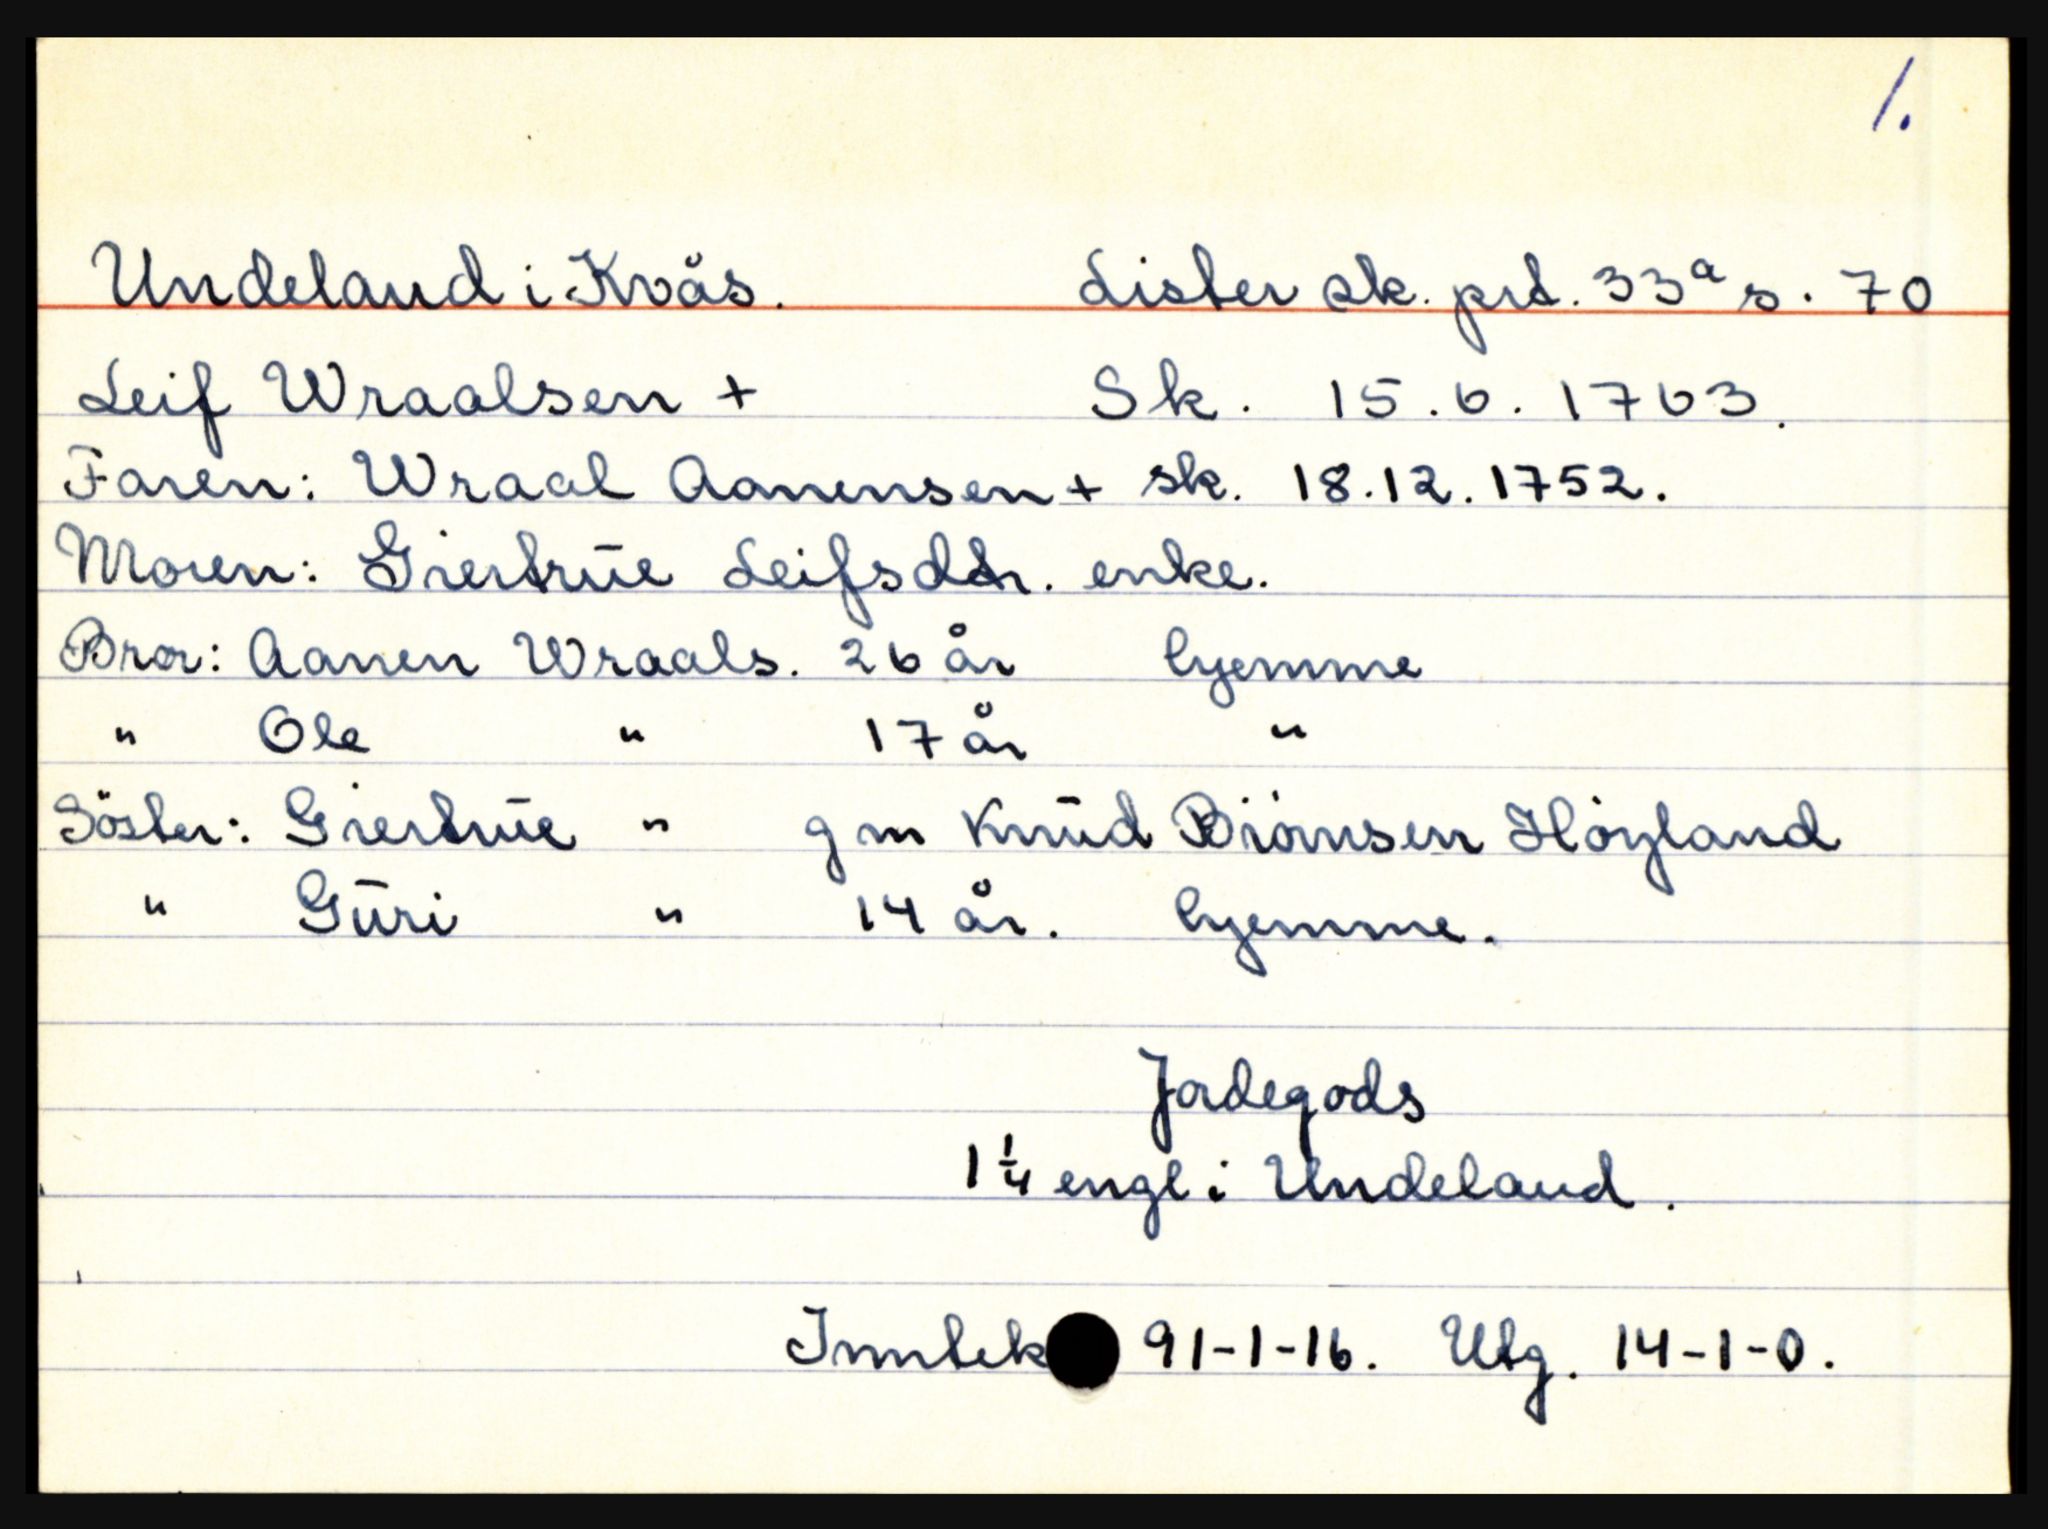 1.
Undeland i Kvås. Lister sk. prt. 33ª s. 70
Leif Wraalsen + Sk. 15.6.1763.
Faren: Wraal Aanensen + sk. 18.12.1752.
Moren: Giertrūe Leifsdtr. enke.
Bror: Aanen Wraals. 26 år hjemme
" Ole " 17 år "
Söster: Giertrūe " gm Knūd Biörnsen Höyland
" Gūri " 14 år. hjemme.
Jordegods
1 1/4 engl i Undeland.
Inntek 91-1-16. Utg. 14-1-0.